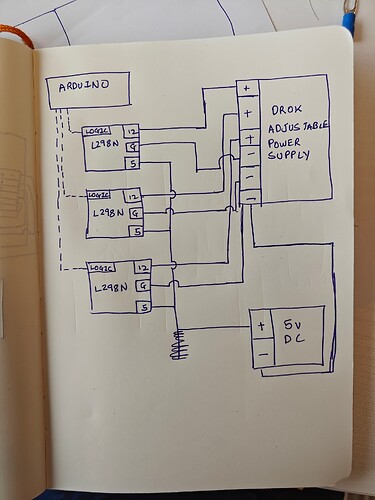 ARDUINO
LOGIC 12
L298N G
5
LOGIC 12
L298N G
5
LOGIC 12
L298N G
5
+
+
+
−
−
−
DROK
ADJUSTABLE
POWER
SUPPLY
+ 5V
− DC